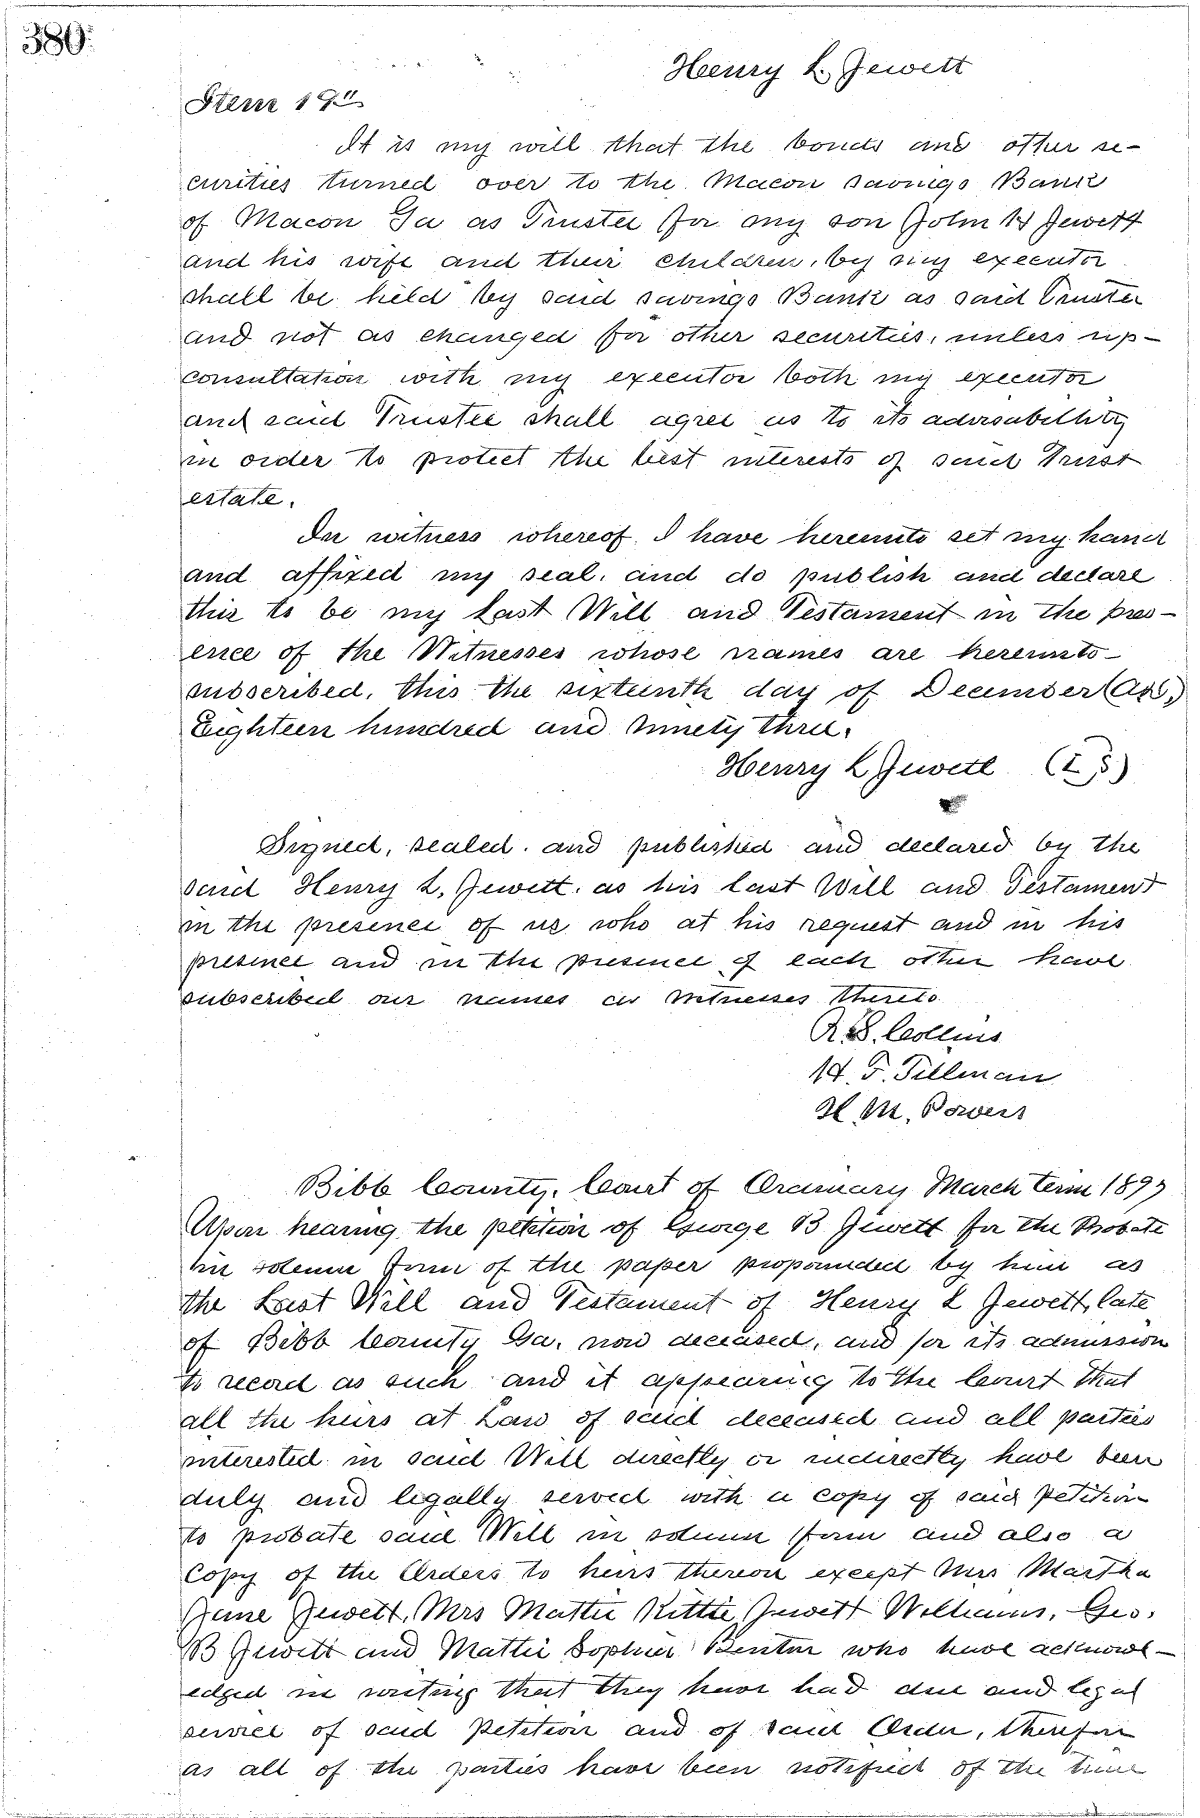 380
Henry L. Jewett
Item 19"
It is my will that the bonds and other se-
curities turned over to the Macon savings Bank
of Macon Ga as Trustee for my son John H Jewett
and his wife and their children, by my executor
shall be held by said savings Bank as said Trustee
and not as changed for other securities, unless up-
consultation with my executor both my executor
and said Trustee shall agree as to its advisability
in order to protect the best interests of said Trust
estate.
In witness whereof I have hereunto set my hand
and affixed my seal, and do publish and declare
this to be my Last Will and Testament in the pres-
ence of the Witnesses whose names are hereunto-
subscribed, this the sixteenth day of December (AD,)
Eighteen hundred and ninety three.
Henry L Jewett (L S)
Signed, sealed and published and declared by the
said Henry L. Jewett as his last Will and Testament
in the presence of us who at his request and in his
presence and in the presence of each other have
subscribed our names as witnesses thereto
R. S. Collins
H. F. Tillman
H. M. Powers
Bibb County, Court of Ordinary March term 1897
Upon hearing the petition of George B Jewett for the Probate
in solemn form of the paper propounded by him as
the Last Will and Testament of Henry L Jewett, late
of Bibb County Ga. now deceased, and for its admission
to record as such and it appearing to the Court that
all the heirs at Law of said deceased and all parties
interested in said Will directly or indirectly have been
duly and legally served with a copy of said petition
to probate said Will in solemn form and also a
copy of the Orders to heirs thereon except Mrs Martha
Jane Jewett, Mrs Mattie Kittie Jewett Williams, Geo.
B Jewett and Mattie Sophia Benton who have acknowl-
edged in writing that they have had due and legal
service of said petition and of said Order, therefore
as all of the parties have been notified of the time